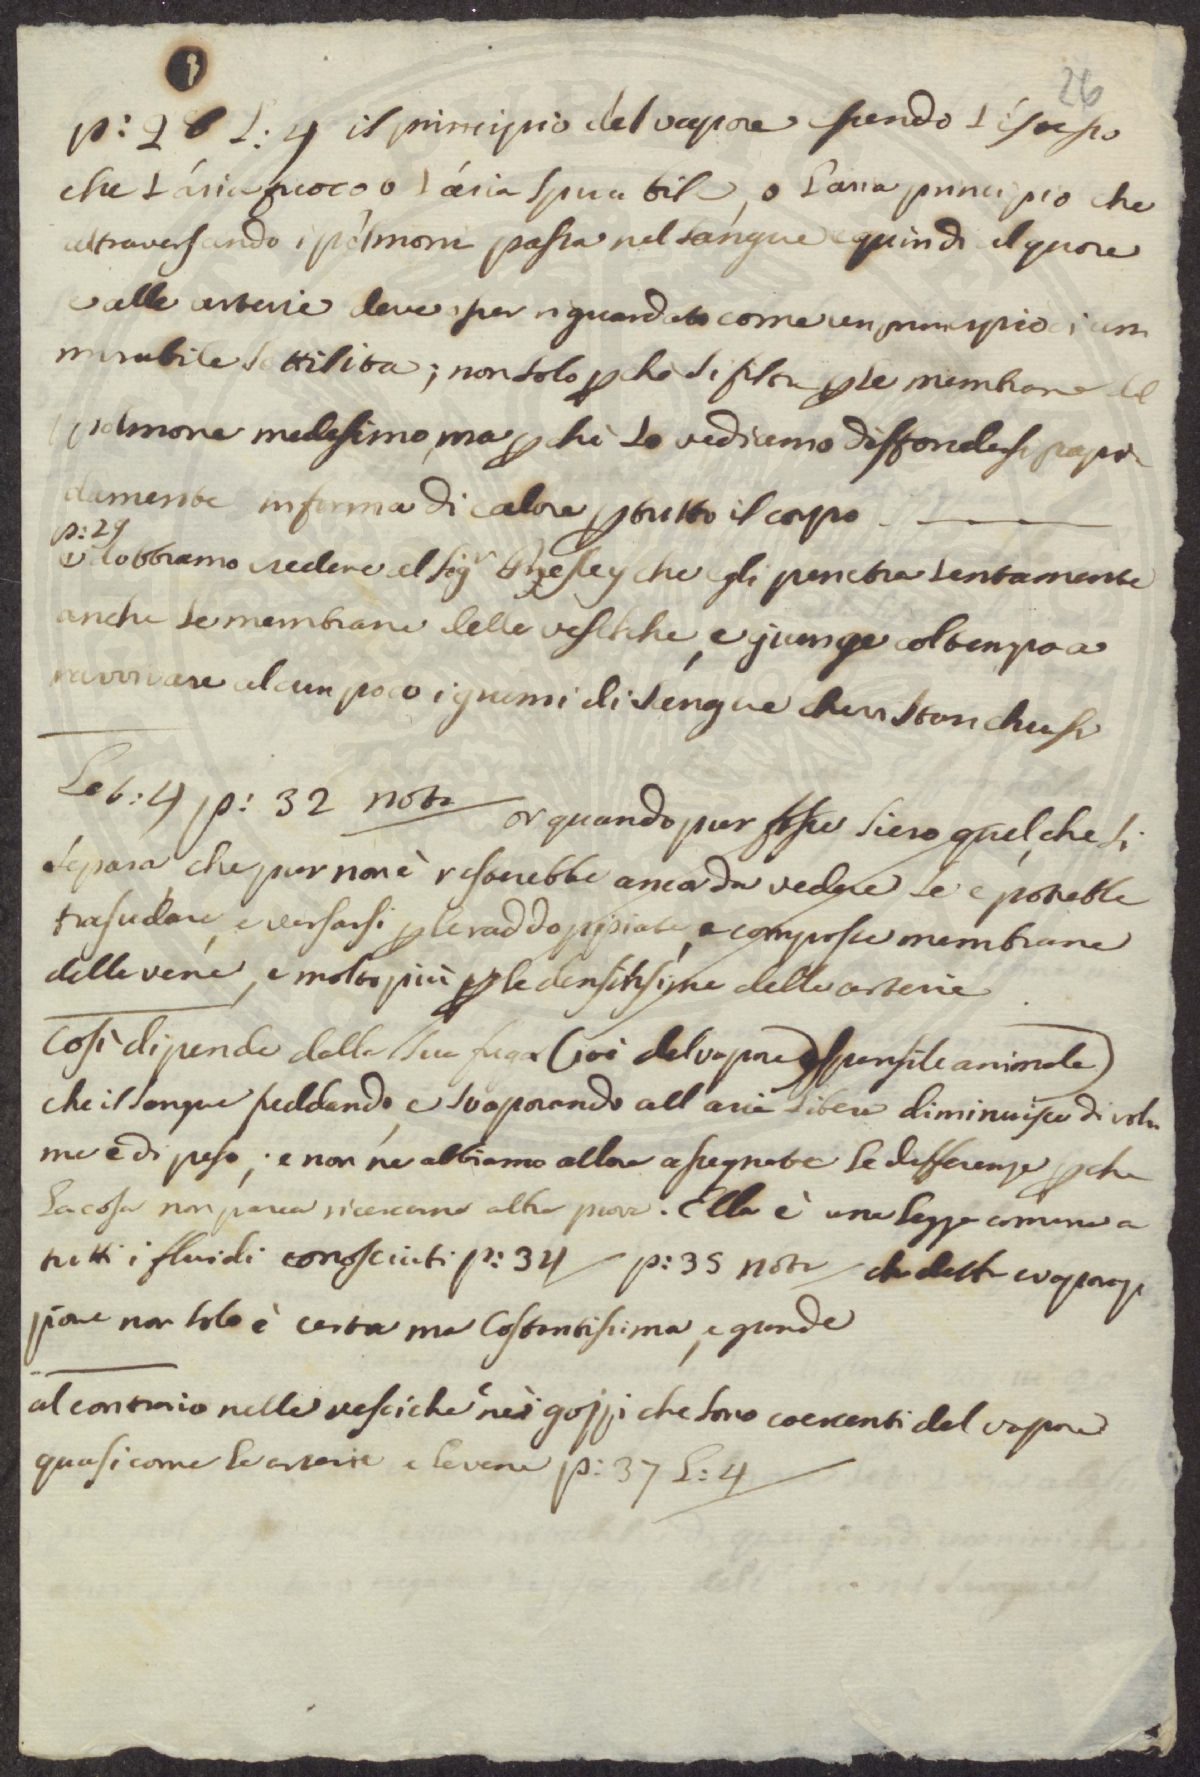 26
p: 28 L: 4 il principio del vapore essendo l'istesso
che l'aria fuoco o l'aria spirabile, o l'aria principio che
attraversando i polmoni passa nel sangue e quindi al quore
e alle arterie deve esser riguardato come un principio di un
mirabile sottilita; non solo pche si filtra p le membrane del
polmone medesimo, ma pchè lo vediamo diffondersi rapi-
damente in forma di calore p tutto il corpo
p: 29
e dobbiamo credere al Sigr Priestley che egli penetra lentamente
anche le membrane delle vesciche, e giunge col tempo a
ravvivare alcun poco i grumi di sangue che vi stan chiusi
Let: 4 p: 32 nota or quando pur fosse siero quel, che si
separa che pur non è resterebbe ancor da vedere se e potrebbe
trasudare, e versarsi p le raddoppiate, e composte membrane
delle vene, e molto più p le densissime delle arterie
Così dipende dalla sua fuga (cioè del vapore espansile animale)
che il sangue freddando, e svaporando all aria libera diminuisce di volu
me e di peso; e non ne abbiamo allora assegnate le differenze pche
la cosa non parea ricercarne altre prove. Ella è una legge comune a
tutti i fluidi conosciuti p: 34 p: 35 nota che detta evaporaz
zione non solo è certa ma costantissima, e grande
al contrario nelle vesciche e nei gozzi che sono coercenti del vapore
quasi come le arterie e le vene p: 37 L: 4